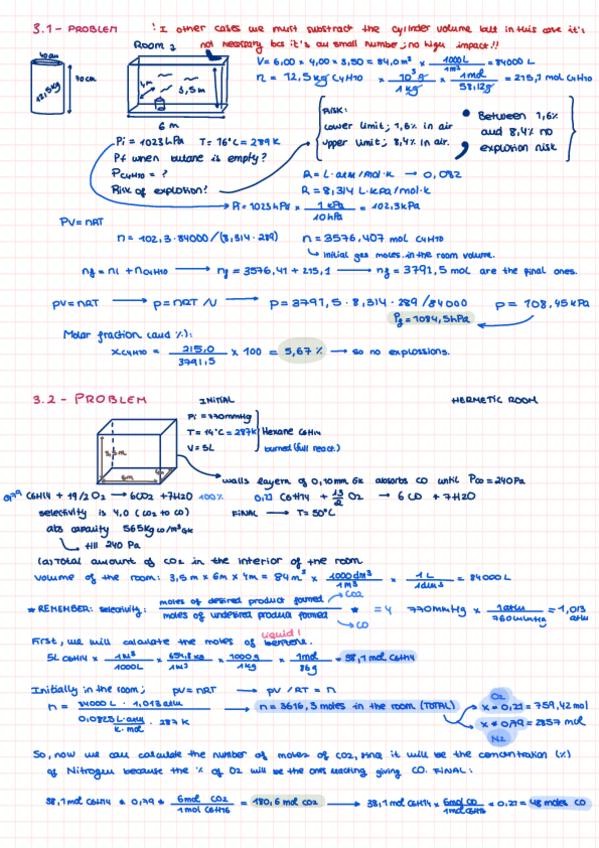 3.1 - PROBLEM ! I other cases we must substract the cylinder volume but in this case it's
not necessary bcs it's au small number; no high impact!!
ROOM 2
40cm
90cm
12,5kg
4m
3,5m
6m
V= 6,00 x 4,00 x 3,50 = 84,0m³ x 1000L / 1m³ = 84000L
n = 12,5kg C4H10 x 10³g / 1kg x 1mol / 58,12g = 215,1 mol C4H10
RISK:
Lower limit; 1,6% in air
upper limit; 8,4% in air.
Between 1,6%
and 8,4% no
explotion risk
Pi = 1023hPa T= 16°C = 289K
Pf when butane is empty?
PC4H10 = ?
Risk of explotion?
R = L·atm/mol·K → 0,082
R = 8,314 L·kPa/mol·K
Pi = 1023hPa x 1kPa / 10hPa = 102,3kPa
PV=nRT
n = 102,3·84000/(8,314·289) n = 3576,407 mol C4H10
initial gas moles in the room volume.
nf = ni + nC4H10 → nf = 3576,41 + 215,1 → nf = 3791,5 mol are the final ones.
pv=nRT → p=nRT/V → p=3791,5·8,314·289/84000 p=108,45kPa
Pf=1084,5hPa
Molar fraction (and %):
xC4H10 = 215,0 / 3791,5 x 100 = 5,67% → so no explossions.
3.2 - PROBLEM INITIAL HERMETIC ROOM
Pi = 770mmHg
T= 14°C = 287K
V= 5L
Hexane C6H14
burned (full react.)
3,5m
6m
4m
walls layern of 0,10mm Gk absorbs CO until Pco=240Pa
0,79 C6H14 + 19/2 O2 → 6CO2 + 7H2O 100% 0,21 C6H14 + 13/2 O2 → 6 CO + 7H2O
selectivity is 4,0 (CO2 to CO) FINAL → T= 50°C
abs capacity 565Kg co/m³Gk
till 240 Pa
(a) Total amount of CO2 in the interior of the room
volume of the room: 3,5m x 6m x 4m = 84m³ x 1000dm³ / 1m³ x 1L / 1dm³ = 84000L
* REMEMBER: selectivity: moles of desired product formed → CO2 / moles of undesired product formed → CO * = 4 770mmHg x 1atm / 760mmHg = 1,013 atm
liquid!
First, we will calculate the moles of benzene.
5L C6H14 x 1m³ / 1000L x 654,8kg / 1m³ x 1000g / 1kg x 1mol / 86g = 38,1mol C6H14
Initially in the room; pv=nRT → pv/RT = n
n = 84000L · 1,013atm / 0,082 L·atm / K·mol · 287K → n = 3616,3 moles in the room (TOTAL)
O2
x 0,21 = 759,42mol
x 0,79 = 2857 mol
N2
So, now we can calculate the number of moles of CO2, it will be the concentration (%)
of Nitrogen because the % of O2 will be the ones reacting giving CO. FINAL:
38,1mol C6H14 * 0,79 * 6mol CO2 / 1mol C6H14 = 180,6 mol CO2 → 38,1mol C6H14 x 6mol CO / 1mol C6H14 x 0,21 = 48 moles CO